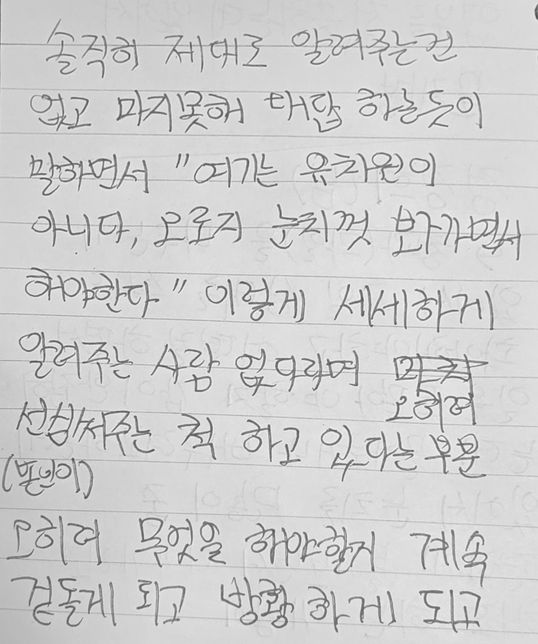 솔직히 제대로 알려주는건
없고 마지못해 대답 하는듯이
말하면서 "여기는 유치원이
아니다, 오로지 눈치껏 봐가면서
해야한다" 이렇게 세세하게
알려주는 사람 없다라며 마치
오히려
선심써주는 척 하고 있다는 부분
(본인이)
오히려 무엇을 해야할지 계속
겉돌게 되고 방황 하게 되고